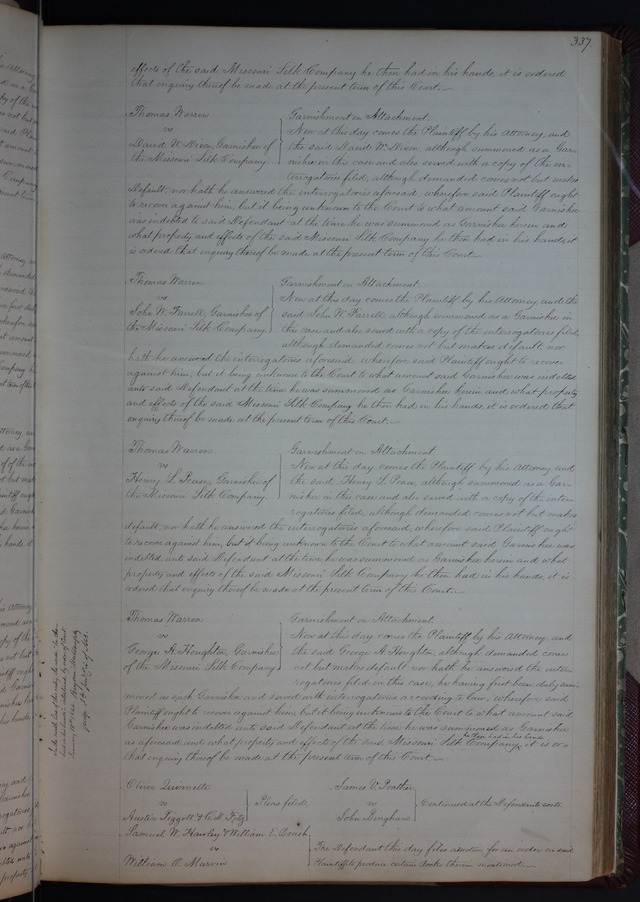 337
effects of the said Missouri Silk Company he then had in his hands, it is ordered
that enquiry thereof be made at the present term of this Court.
Thomas Warren
vs
David W. Dixon, Garnishee of
the Missouri Silk Company.
Garnishment on Attachment.
Now at this day comes the Plaintiff by his Attorney, and
the said David W. Dixon, although summoned as a Gar-
nishee in this case and also served with a copy of the in-
terrogatories filed, although demanded comes not but makes
Default, nor hath he answered the interrogatories aforesaid, wherefore said Plaintiff ought
to recover against him, but it being unknown to the Court to what amount said Garnishee
was indebted to said Defendant at the time he was summoned as Garnishee herein and
what property and effects of the said Missouri Silk Company he then had in his hands, it
is ordered that enquiry thereof be made at the present term of this Court.
Thomas Warren
vs
John W. Farrell, Garnishee of
the Missouri Silk Company.
Garnishment on Attachment.
Now at this day comes the Plaintiff by his Attorney, and the
said John W. Farrell, although summoned as a Garnishee in
this case and also served with a copy of the interrogatories filed,
although demanded comes not but makes default, nor
hath he answered the interrogatories aforesaid, wherefore said Plaintiff ought to recover
against him, but it being unknown to the Court to what amount said Garnishee was indebted
unto said Defendant at the time he was summoned as Garnishee herein and what property
and effects of the said Missouri Silk Company he then had in his hands, it is ordered that
enquiry thereof be made at the present term of this Court.
Thomas Warren
vs
Henry L. Pease, Garnishee of
the Missouri Silk Company.
Garnishment on Attachment.
Now at this day comes the Plaintiff by his Attorney, and
the said Henry L. Pease, although summoned as a Gar-
nishee in this case and also served with a copy of the inter-
rogatories filed, although demanded comes not but makes
default, nor hath he answered the interrogatories aforesaid, wherefore said Plaintiff ought
to recover against him, but it being unknown to the Court to what amount said Garnishee was
indebted unto said Defendant at the time he was summoned as Garnishee herein and what
property and effects of the said Missouri Silk Company he then had in his hands, it is
ordered that enquiry thereof be made at the present term of this Court.
Thomas Warren
vs
George H. Houghton, Garnishee
of the Missouri Silk Company
Garnishment on Attachment.
Now at this day comes the Plaintiff by his Attorney, and
the said George H. Houghton, although demanded comes
not but makes default, nor hath he answered the inter-
rogatories filed in this case, he having first been duly sum-
moned as such Garnishee and served with interrogatories according to law, wherefore said
Plaintiff ought to recover against him, but it being unknown to the Court to what amount said
Garnishee was indebted unto said Defendant at the time he was summoned as Garnishee
as aforesaid and what property and effects of the said Missouri Silk Company he then had in his hands, it is or-
that enquiry thereof be made at the present term of this Court.
vs
Pleas filed.
James V. Prather
vs
John Bingham
Continued at the Defendants costs.
Samuel W. Hawley & William E.
vs
William C. Marvin
The Defendant this day files a motion for an order on said
Plaintiffs to produce certain Books therein mentioned.